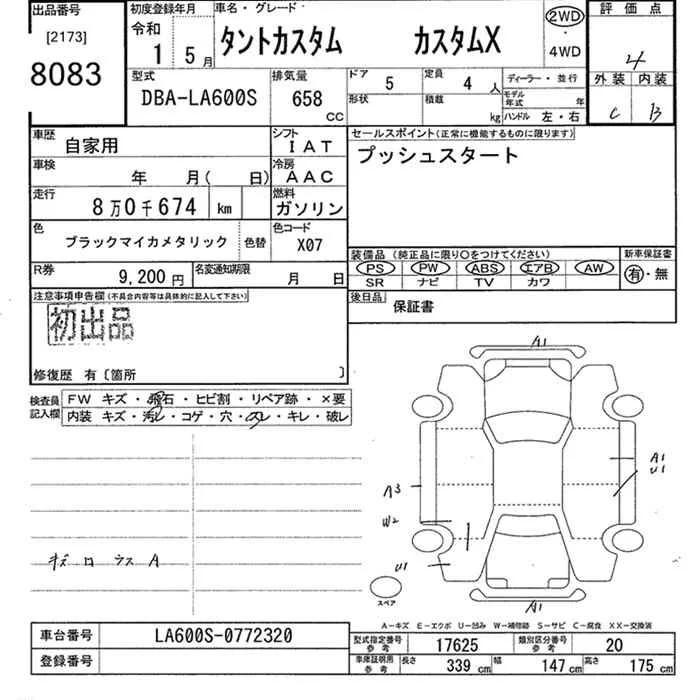 出品番号
[2173]
8083
初度登録年月
令和
1 年 5 月
車名・グレード
タントカスタム カスタムX
2WD
・
4WD
評価点
4
外装 内装
C B
型式
DBA-LA600S
排気量
658
CC
ドア 5
定員 4 人
形状
積載 kg
ディーラー・並行
モデル年式 年
ハンドル 左・右
車歴 自家用
シフト IAT
車検 年 月( 日)
冷房 AAC
走行 8万0千674 km
燃料 ガソリン
色 ブラックマイカメタリック 色替
色コード X07
R券 9,200円
名変通知期限 月 日
セールスポイント(正常に機能するものに限ります)
プッシュスタート
装備品 (純正品に限り○をつけてください)
PS PW ABS エアB AW
SR ナビ TV カワ
新車保証書
有・無
後日品 保証書
注意事項申告欄(不具合内容等は具体的に記入して下さい)
初出品
修復歴 有〔箇所 〕
検査員記入欄
FW キズ・飛石・ヒビ割・リペア跡・×要
内装 キズ・汚レ・コゲ・穴・スレ・キレ・破レ
A1
A1
U1
A3
W2
U1
A1
スペア
A-キズ E-エクボ U-凹み W-補修跡 S-サビ C-腐食 XX-交換済
車台番号 LA600S-0772320
登録番号
型式指定番号参考 17625
類別区分番号参考 20
車庫証明用参考
長さ 339 cm
幅 147 cm
高さ 175 cm